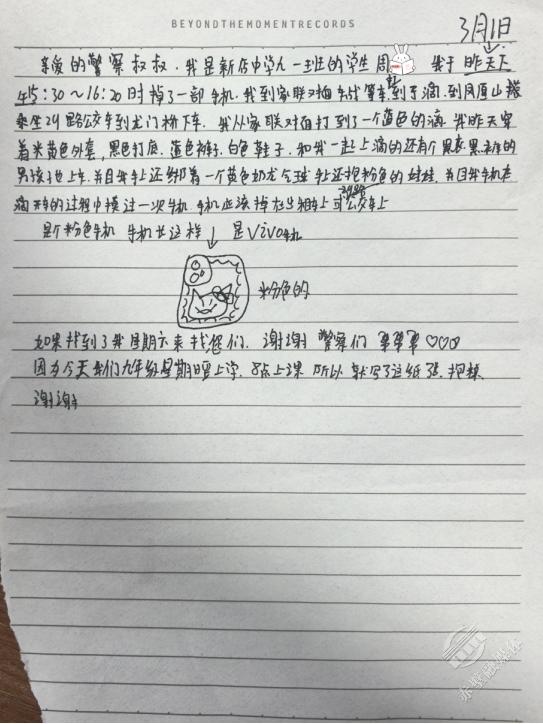 BEYONDTHEMOMENTRECORDS
3月1日
亲爱的警察叔叔,我是新店中学九一班的学生周 我于昨天下
午5:30~16:20时掉了一部手机,我到家联对面车战等车,到了滴,到凤眉山
乘坐24路公交车到龙门桥下车,我从家联对面打到了一个蓝色的滴,我昨天穿
着米黄色外套,黑色打底,蓝色裤子,白色鞋子,和我一起上滴的还有个黑衣黑裤的
男孩也上车,并且我手上还绑着一个黄色奶龙气球,手上还抱粉色的娃娃,并且我手机在
滴开车的过程中摸过一次手机,手机应该掉在24路公交车上
是个粉色手机 手机长这样↓ 是vivo手机
粉色的
如果找到了我星期六来找您们,谢谢警察们 ♡♡♡
因为今天我们九年级星期日要上学,8点上课 所以就写了这纸张,抱歉
谢谢
赤壁融媒体